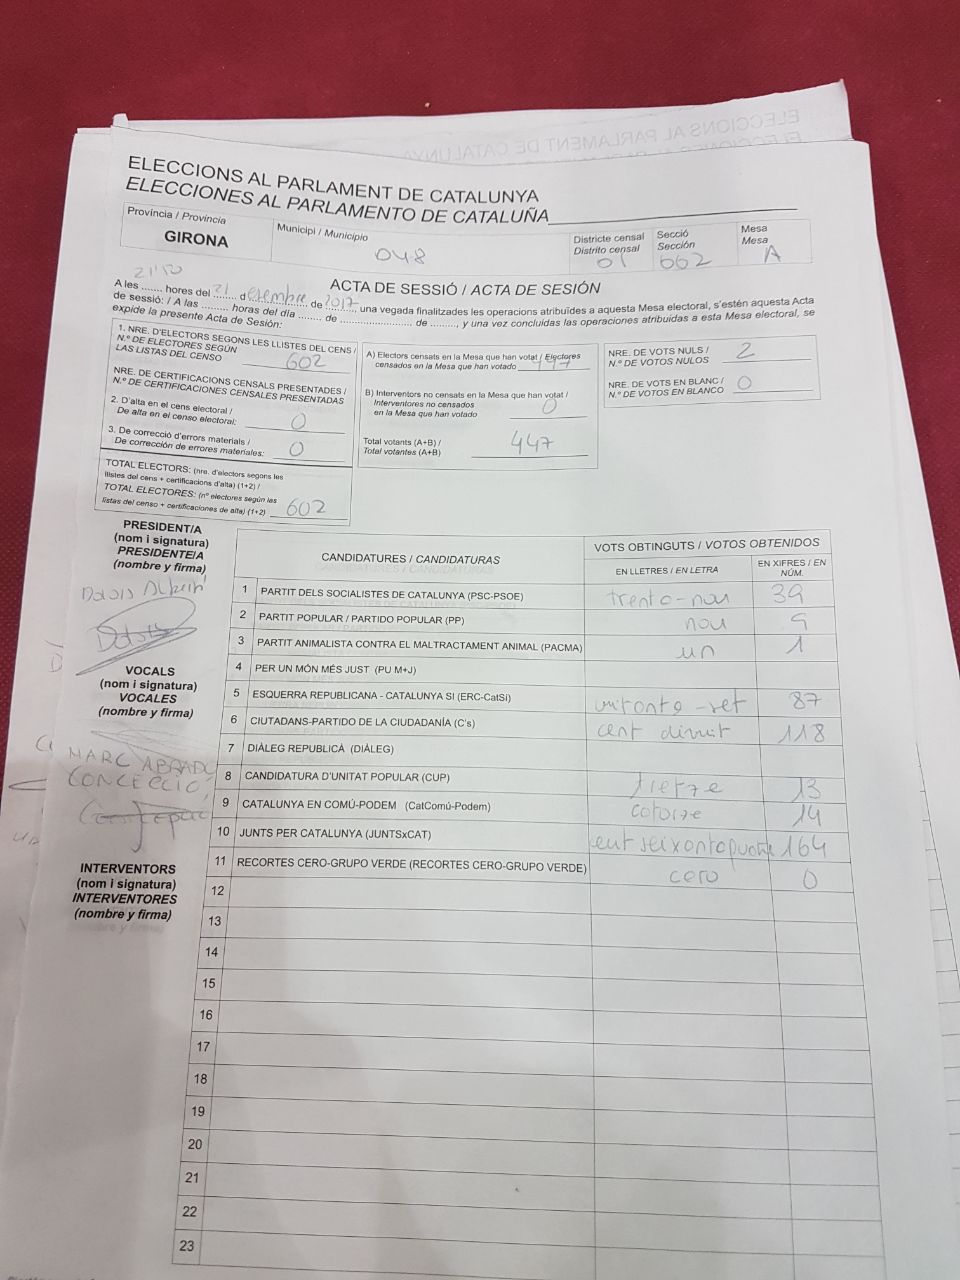 ELECCIONS AL PARLAMENT DE CATALUNYA
ELECCIONES AL PARLAMENTO DE CATALUÑA
Província / Provincia
GIRONA
Municipi / Municipio
048
Districte censal
Distrito censal
01
Secció
Sección
002
Mesa
Mesa
A
ACTA DE SESSIÓ / ACTA DE SESIÓN
21'50
A les ....... hores del 21 desembre de 2017, una vegada finalitzades les operacions atribuïdes a aquesta Mesa electoral, s'estén aquesta Acta
de sessió: / A las ......... horas del día ........ de ........................ de ........., y una vez concluidas las operaciones atribuidas a esta Mesa electoral, se
expide la presente Acta de Sesión:
1. NRE. D'ELECTORS SEGONS LES LLISTES DEL CENS /
N.º DE ELECTORES SEGÚN
LAS LISTAS DEL CENSO 602
NRE. DE CERTIFICACIONS CENSALS PRESENTADES /
N.º DE CERTIFICACIONES CENSALES PRESENTADAS
2. D'alta en el cens electoral /
De alta en el censo electoral: 0
3. De correcció d'errors materials /
De corrección de errores materiales: 0
TOTAL ELECTORS: (nre. d'electors segons les
llistes del cens + certificacions d'alta) (1+2) /
TOTAL ELECTORES: (nº electores según las
listas del censo + certificaciones de alta) (1+2) 602
A) Electors censats en la Mesa que han votat / Electores
censados en la Mesa que han votado 447
B) Interventors no censats en la Mesa que han votat /
Interventores no censados
en la Mesa que han votado 0
Total votants (A+B) /
Total votantes (A+B) 447
NRE. DE VOTS NULS /
N.º DE VOTOS NULOS 2
NRE. DE VOTS EN BLANC /
N.º DE VOTOS EN BLANCO 0
PRESIDENT/A
(nom i signatura)
PRESIDENTE/A
(nombre y firma)
VOCALS
(nom i signatura)
VOCALES
(nombre y firma)
MARC
CONCECCIÓ
INTERVENTORS
(nom i signatura)
INTERVENTORES
(nombre y firma)
CANDIDATURES / CANDIDATURAS
VOTS OBTINGUTS / VOTOS OBTENIDOS
EN LLETRES / EN LETRA
EN XIFRES / EN NÚM.
1 PARTIT DELS SOCIALISTES DE CATALUNYA (PSC-PSOE) trenta-nou 39
2 PARTIT POPULAR / PARTIDO POPULAR (PP) nou 9
3 PARTIT ANIMALISTA CONTRA EL MALTRACTAMENT ANIMAL (PACMA) un 1
4 PER UN MÓN MÉS JUST (PU M+J)
5 ESQUERRA REPUBLICANA - CATALUNYA SI (ERC-CatSí) vuitanta-set 87
6 CIUTADANS-PARTIDO DE LA CIUDADANÍA (C's) cent divuit 118
7 DIÀLEG REPUBLICÀ (DIÀLEG)
8 CANDIDATURA D'UNITAT POPULAR (CUP) tretze 13
9 CATALUNYA EN COMÚ-PODEM (CatComú-Podem) catorze 14
10 JUNTS PER CATALUNYA (JUNTSxCAT) 164
11 RECORTES CERO-GRUPO VERDE (RECORTES CERO-GRUPO VERDE) cero 0
12
13
14
15
16
17
18
19
20
21
22
23